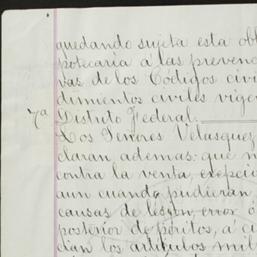 quedando sujeta esta obl
potecaria á las prevenc
vas de los Codigos civi
dimientos civiles vige
7a Distrito Federal.
Los Señores Velasquez
claran, ademas: que n
contra la venta, escepció
aun cuando pudieran
causas de lesion, error ó
posterior de peritos, á ci
dian los artículos mil